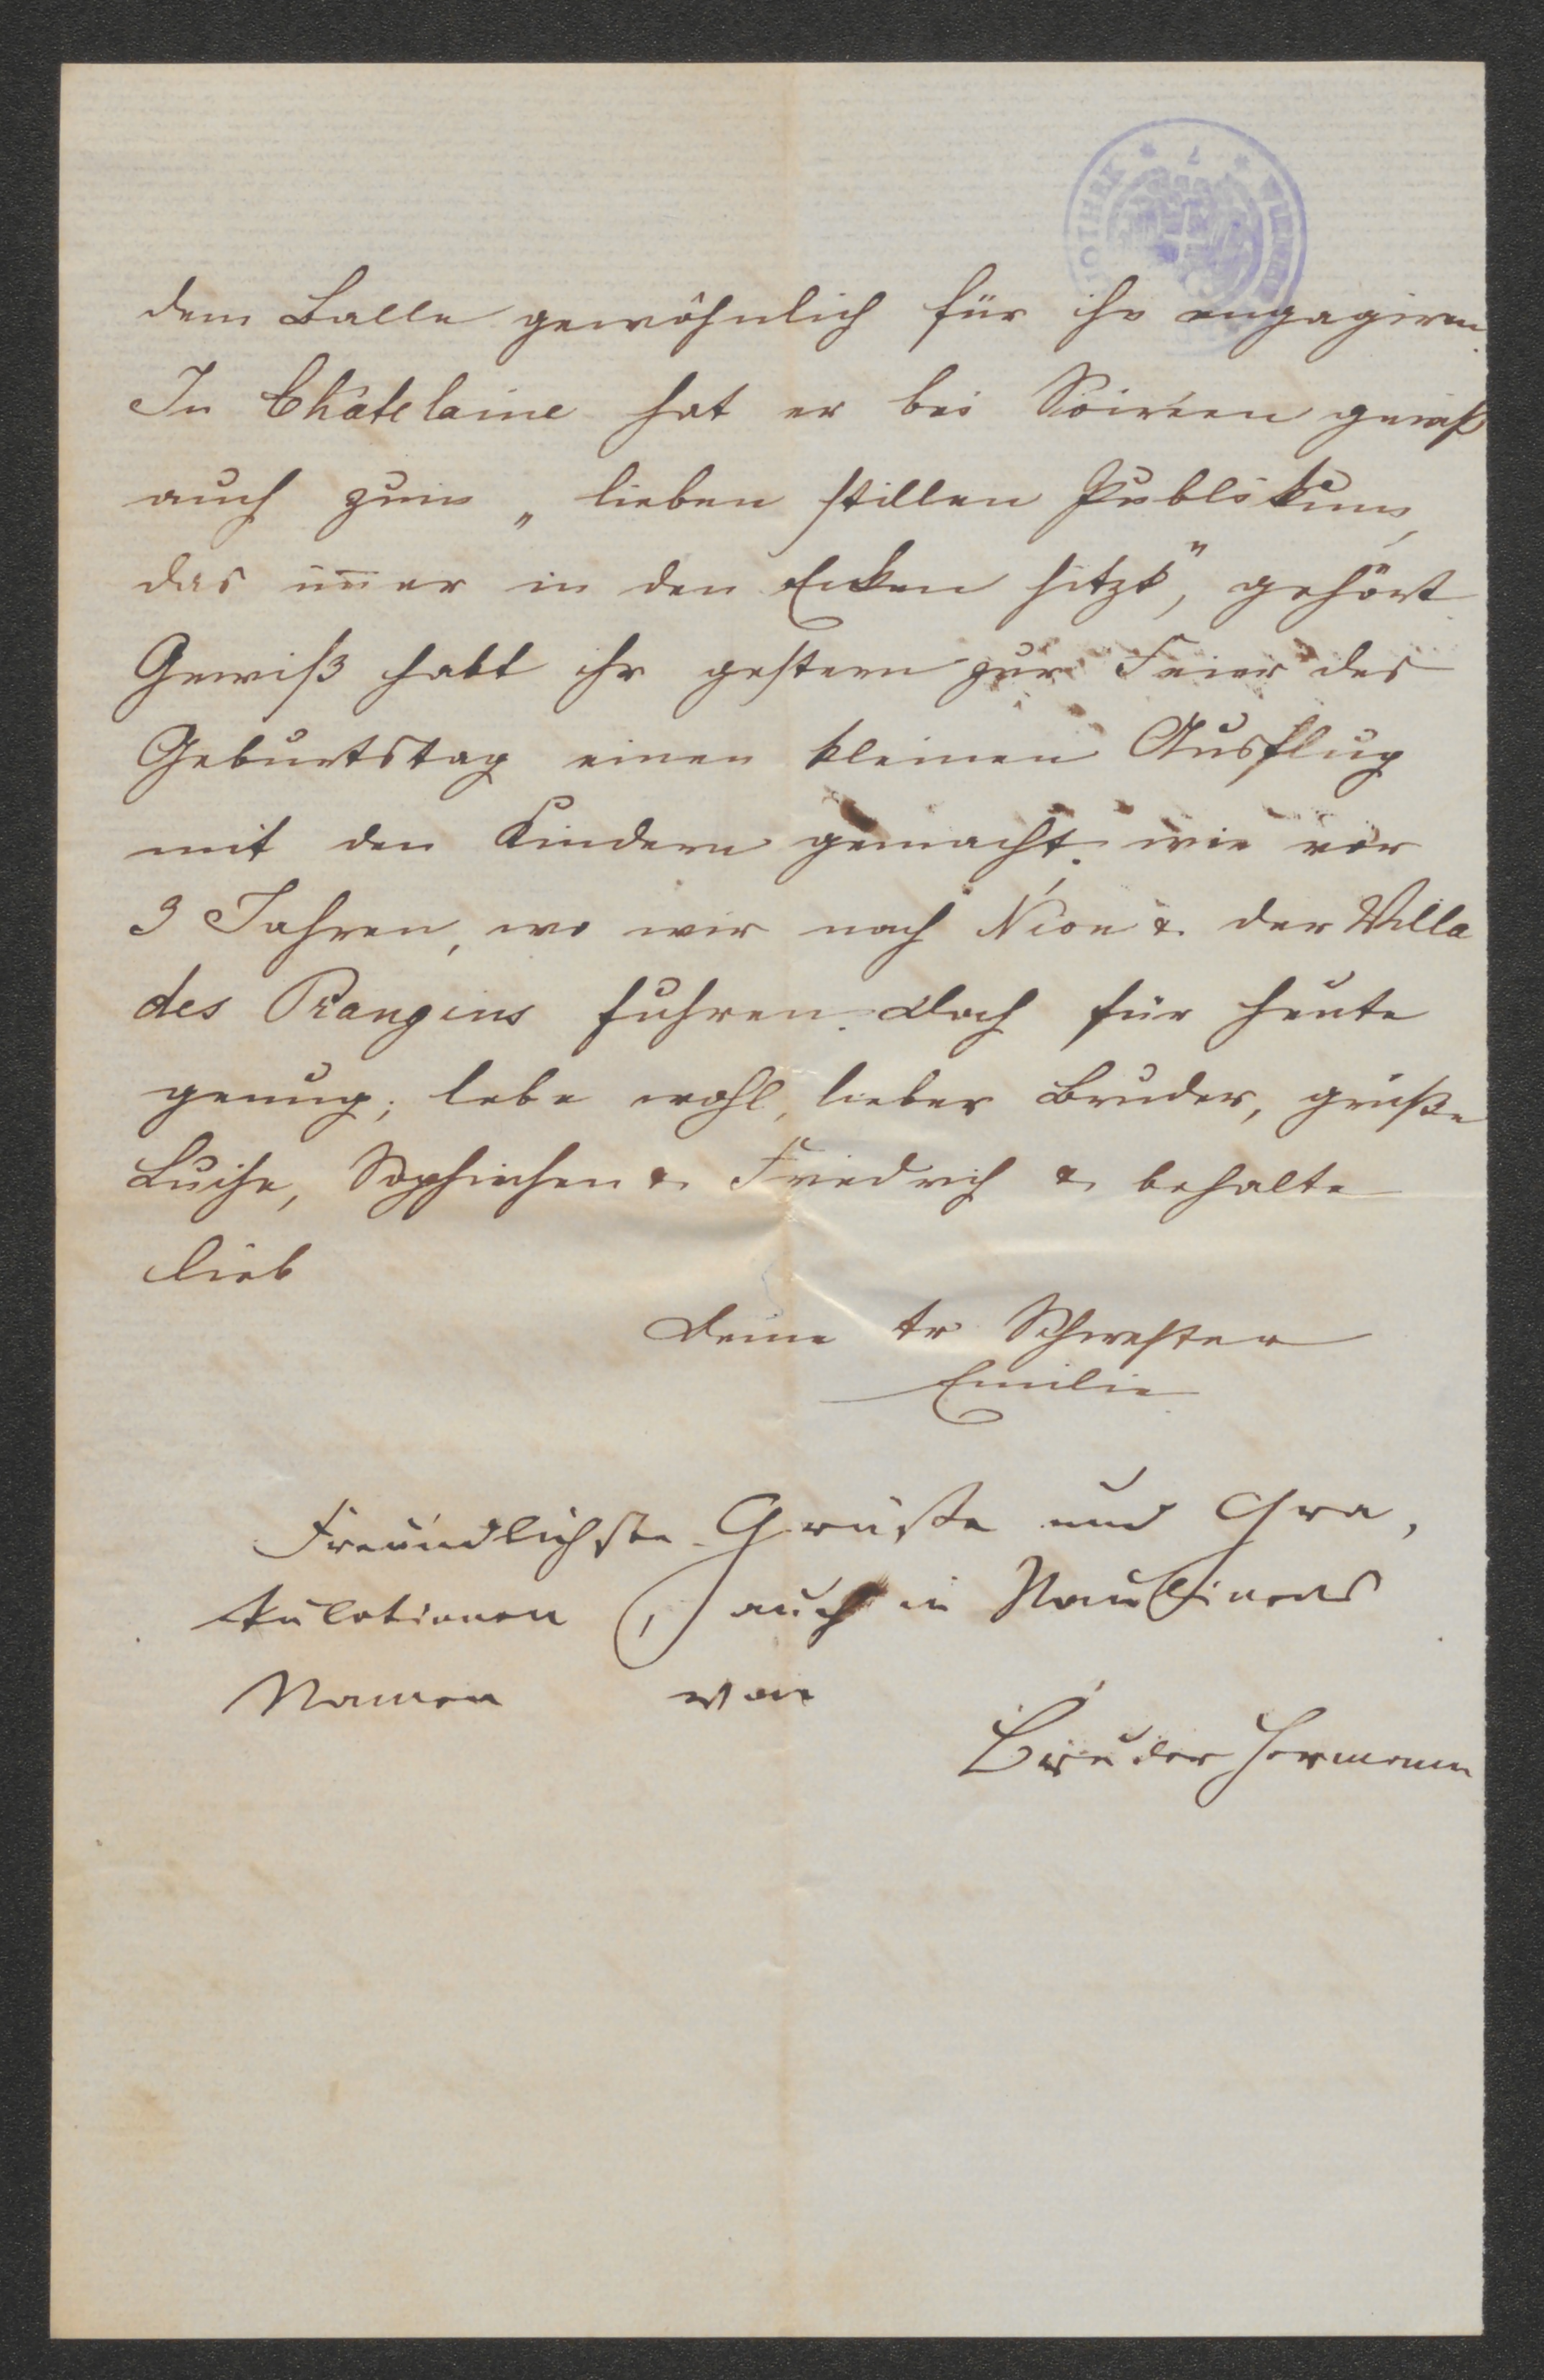 dem Balle gewöhnlich für ihn engagiren.
In Châtelaine hat er bei Soiréen gewiß
auch zum „lieben stillen Publikum,
das im̅er in den Ecken sitzt“, gehört
Gewiß habt ihr gestern zur Feier des
Geburtstag einen kleinen Ausflug
mit den Kindern gemacht, wie vor
3 Jahren, wo wir nach Nion & der Villa
des Prangins fuhren. Doch für heute
genug; lebe wohl, lieber Bruder, grüße
Luise, Sophiechen & Friedrich & behalte
lieb
Deine tr Schwester
Emilie
Freundlichste Grüße und Gra,
tulationen, auch in
Namen von
Bruder Hermann